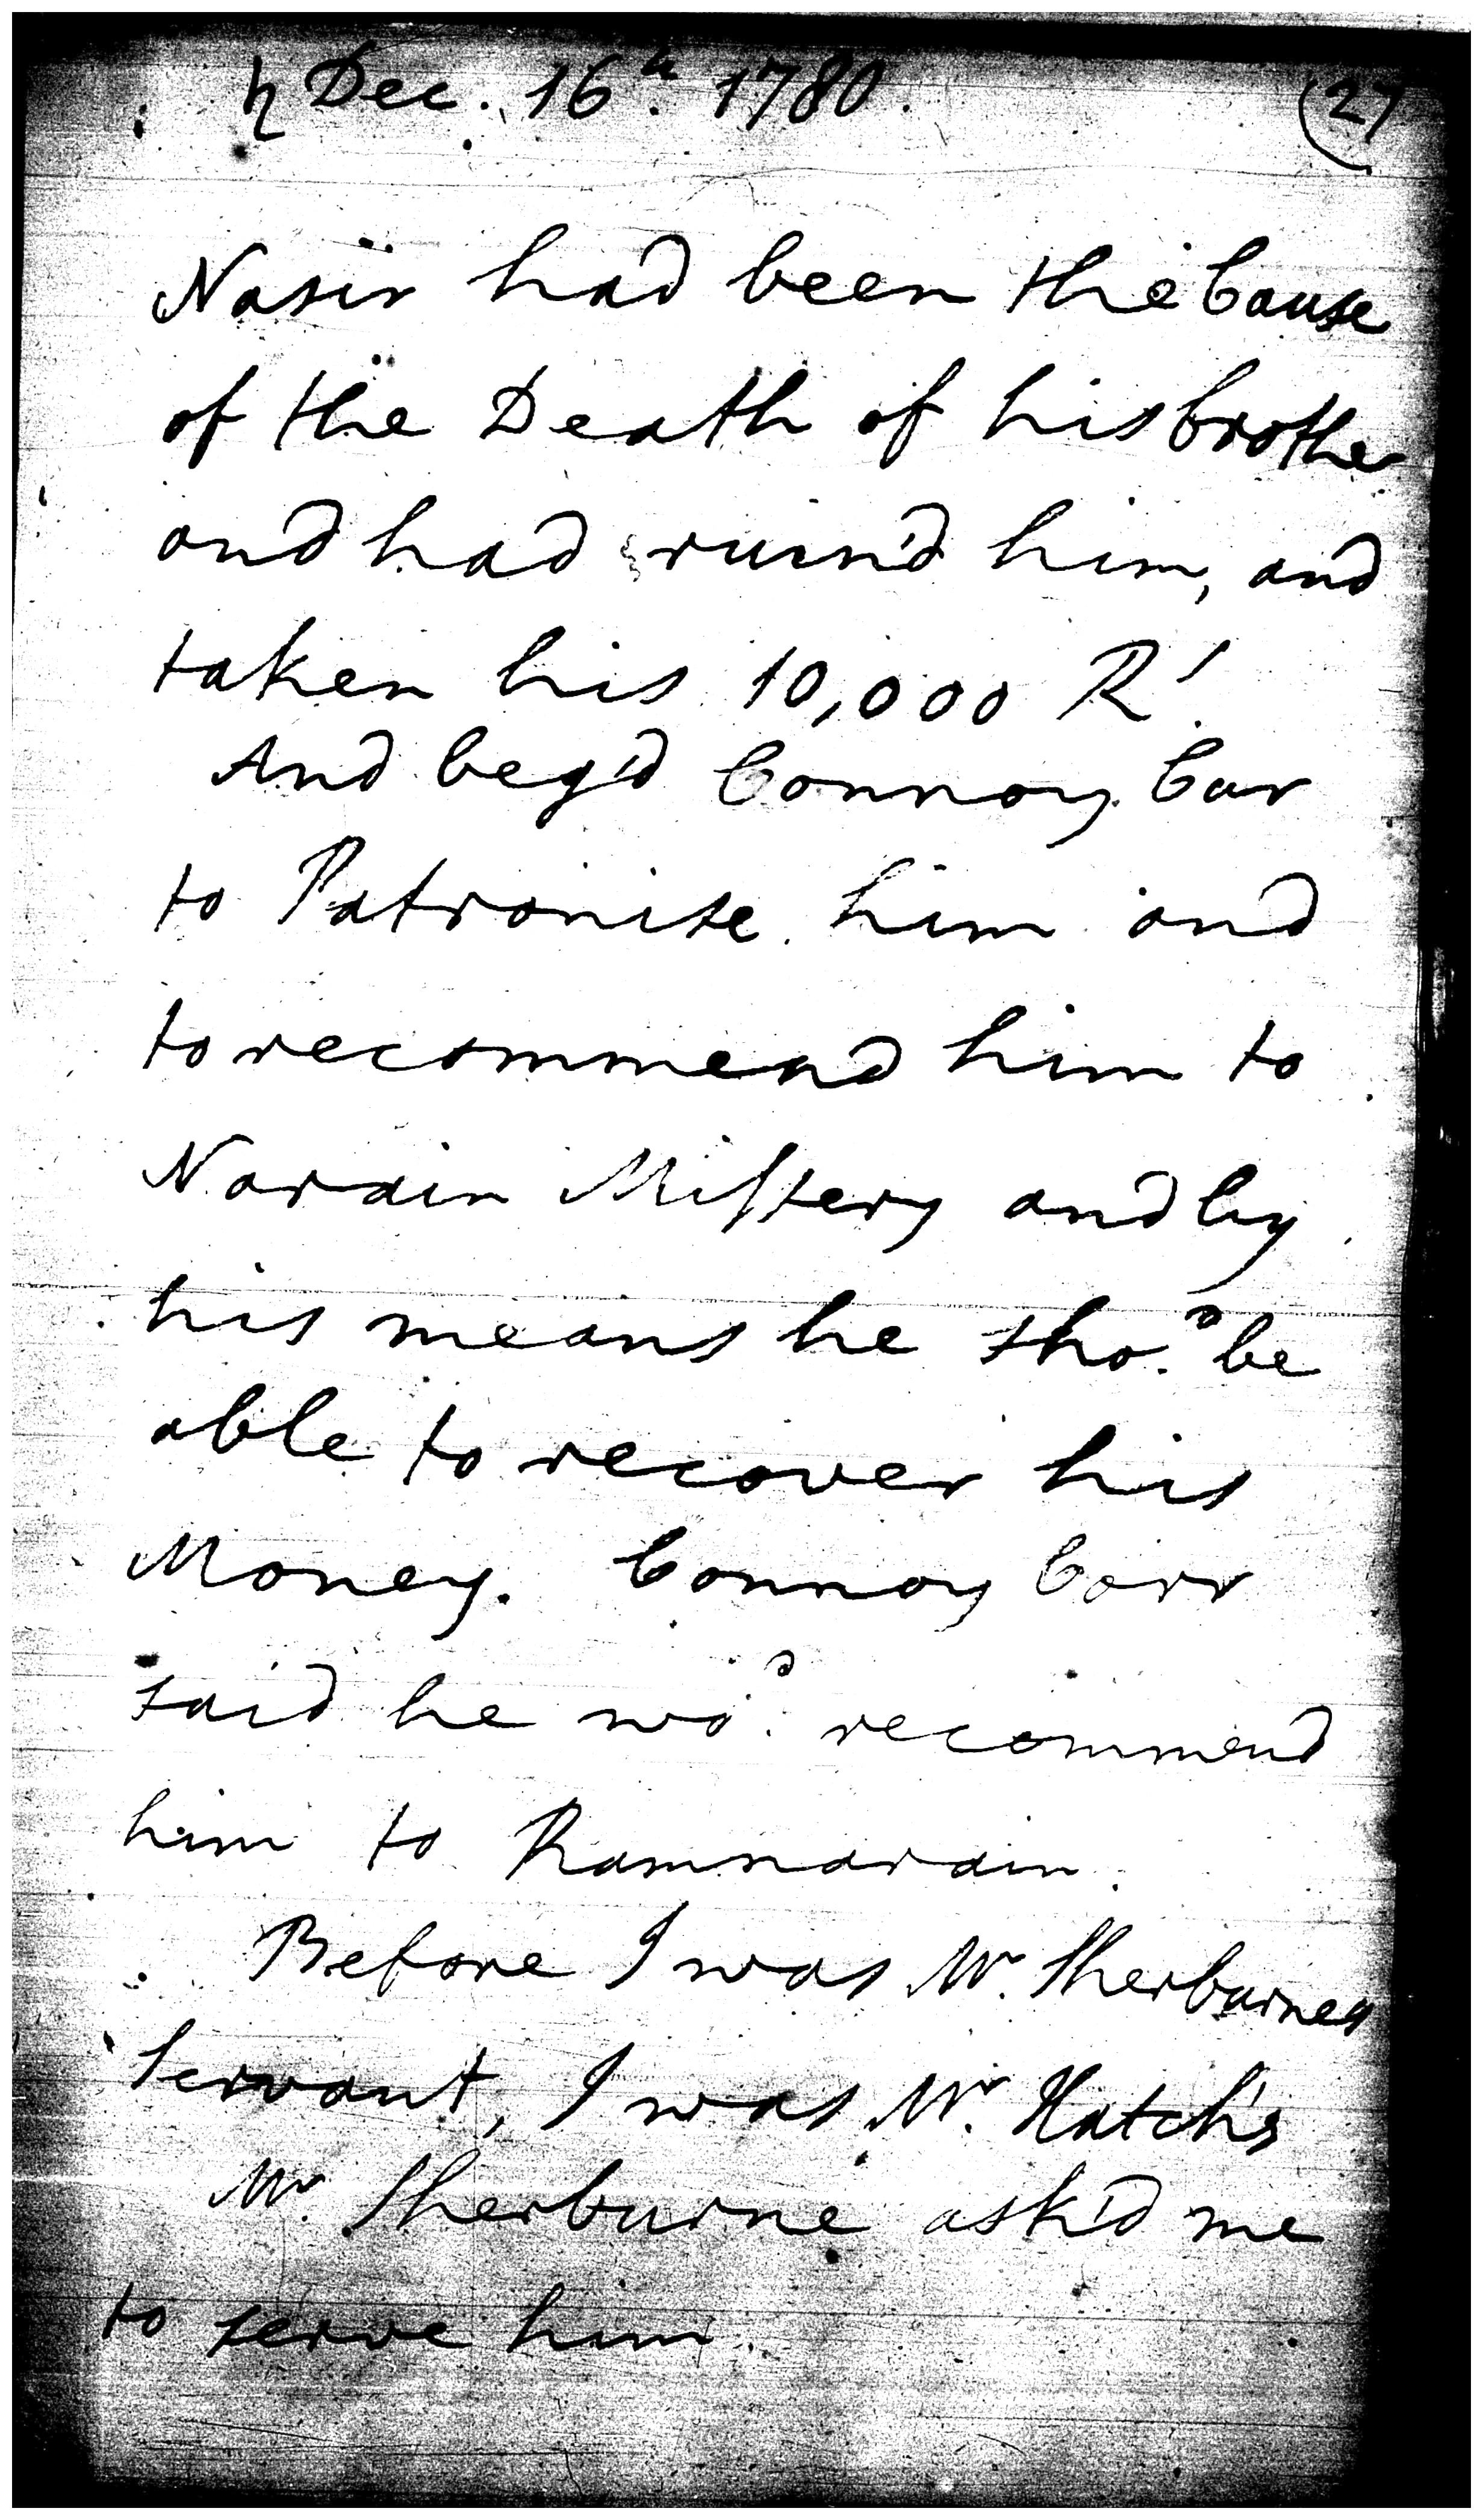 ♄ Dec. 16th. 1780. (27)
Nasir had been the Cause
of the Death of his brother
and had ruin'd him, and
taken his 10,000 Rs.
And beg'd Connoy Car
to Patronise him and
to recommend him to
Narain Mistery and by
his means he sho.d be
able to recover his
Money. Connoy Carr
said he wo.d recommend
him to Ramnarain.
Before I was Mr. Sherburnes
Servant, I was Mr. Hatch's
Mr. Sherburne ask'd me
to serve him.